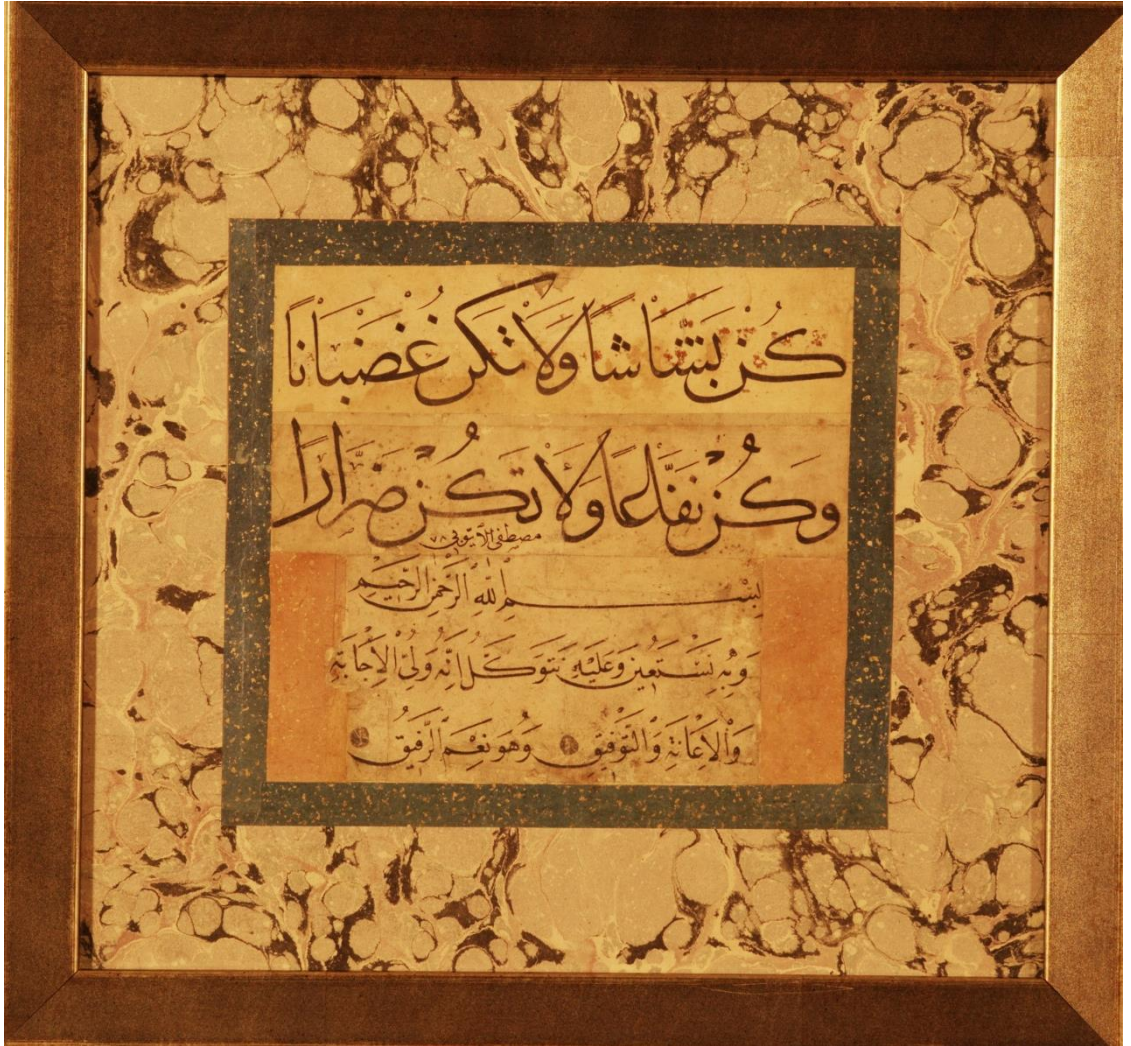 كُنْ بَشَّاشًا وَلَا تَكُنْ غُضَبْانًا
وَكُنْ نَفَّاعًا وَلَا تَكُنْ ضَرَّارًا
مصطفى الأيوبي ٧٨
بِسْمِ اللّٰهِ الرَّحْمٰنِ الرَّحِيمِ
وَبِهِ نَسْتَعِينُ وَعَلَيْهِ نَتَوَكَّلُ إِنَّهُ وَلِيُّ الْإِجَابَةِ
وَالْإِعَانَةِ وَالتَّوْفِيقِ وَهُوَ نِعْمَ الرَّفِيقُ